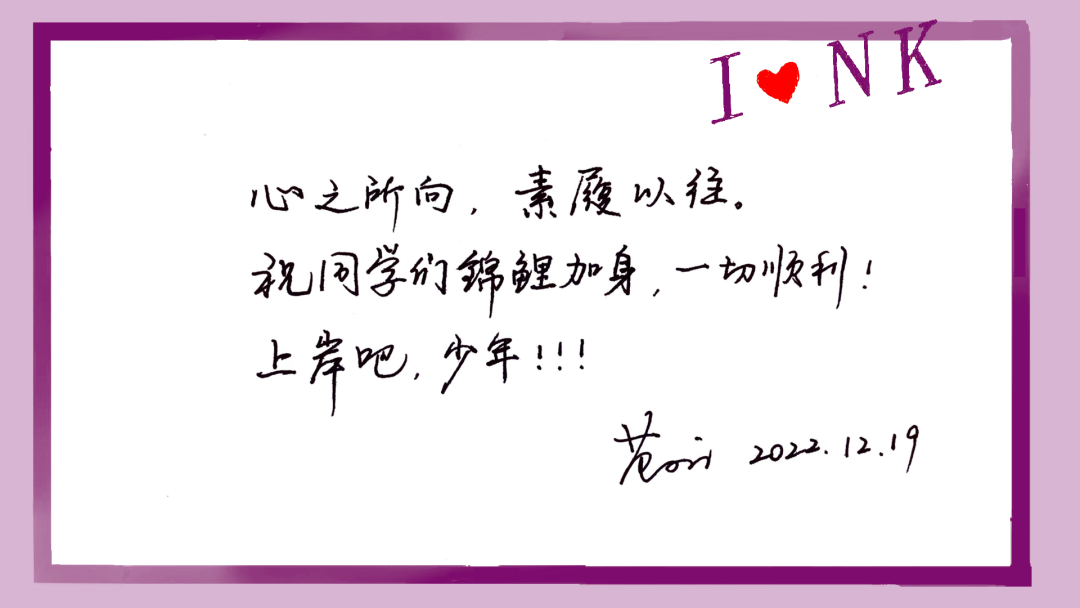 I ❤ NK
心之所向，素履以往。
祝同学们錦鲤加身，一切顺利！
上岸吧，少年！！！
2022.12.19